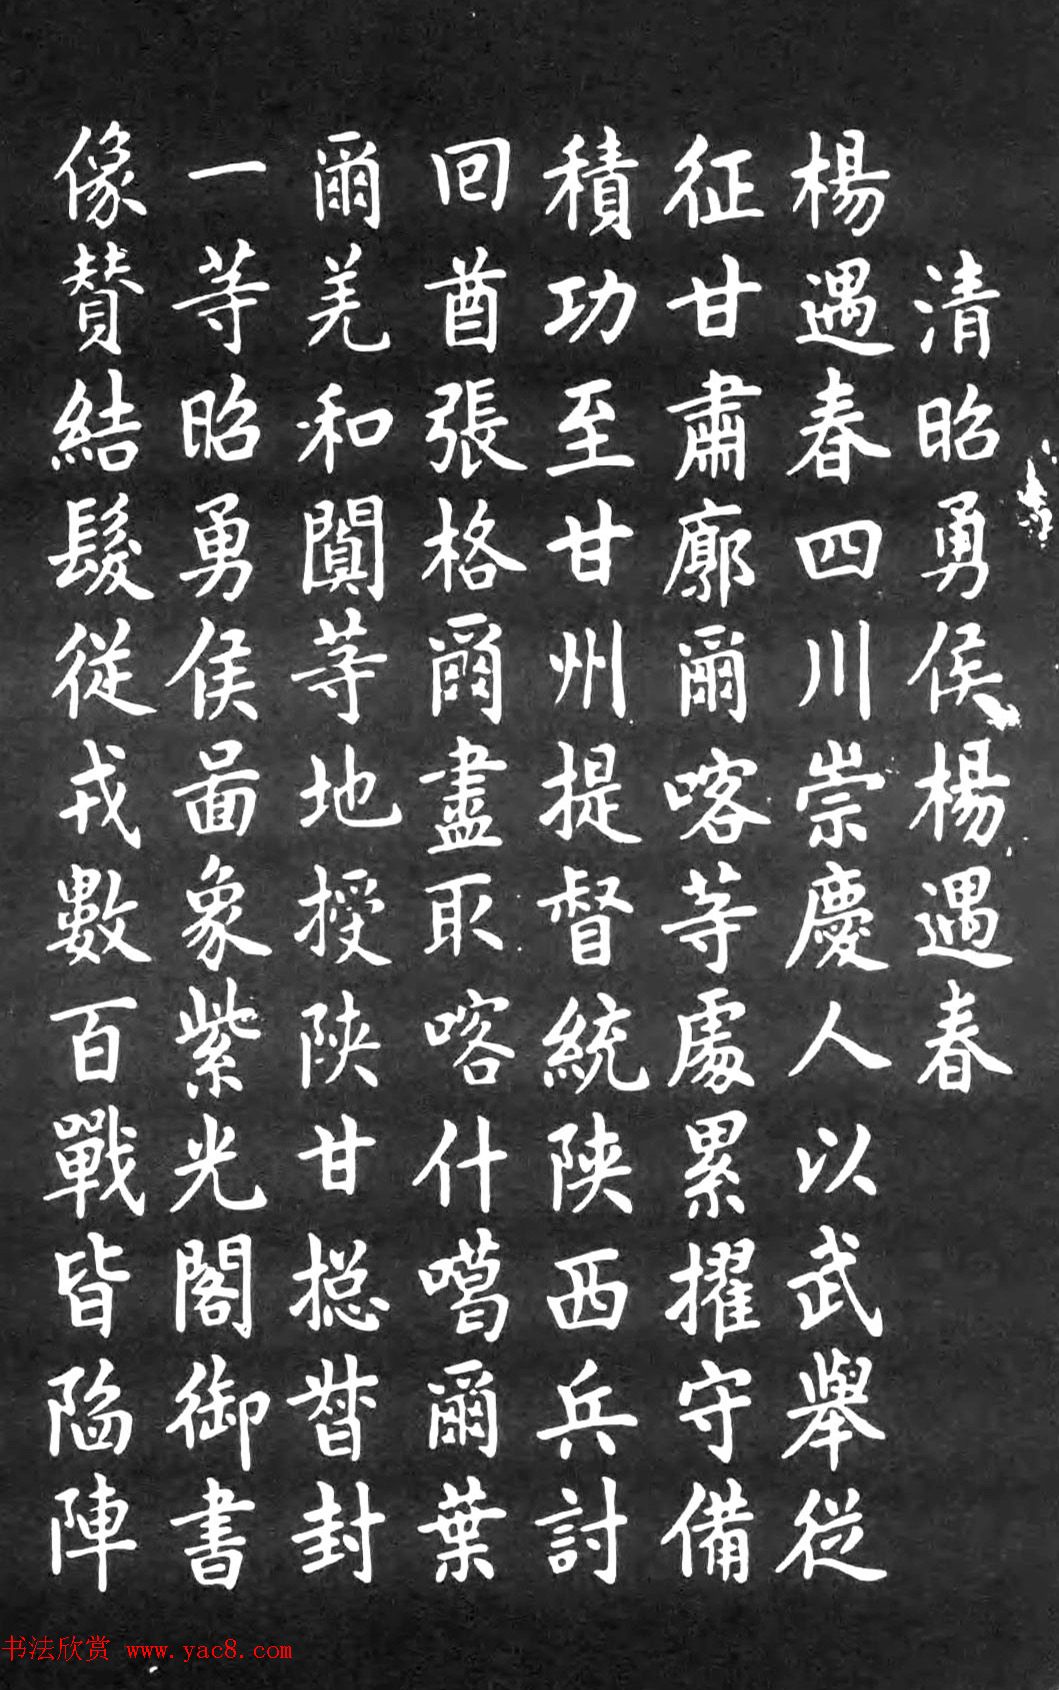 清昭勇侯楊遇春
楊遇春四川崇慶人以武舉從
征甘肅廓爾喀等處累擢守備
積功至甘州提督統陝西兵討
回酋張格爾盡取喀什噶爾葉
爾羌和闐等地授陝甘摠督封
一等昭勇侯啚象紫光閣御書
像贊結髮從戎數百戰皆陷陣
书法欣赏 www.yac8.com